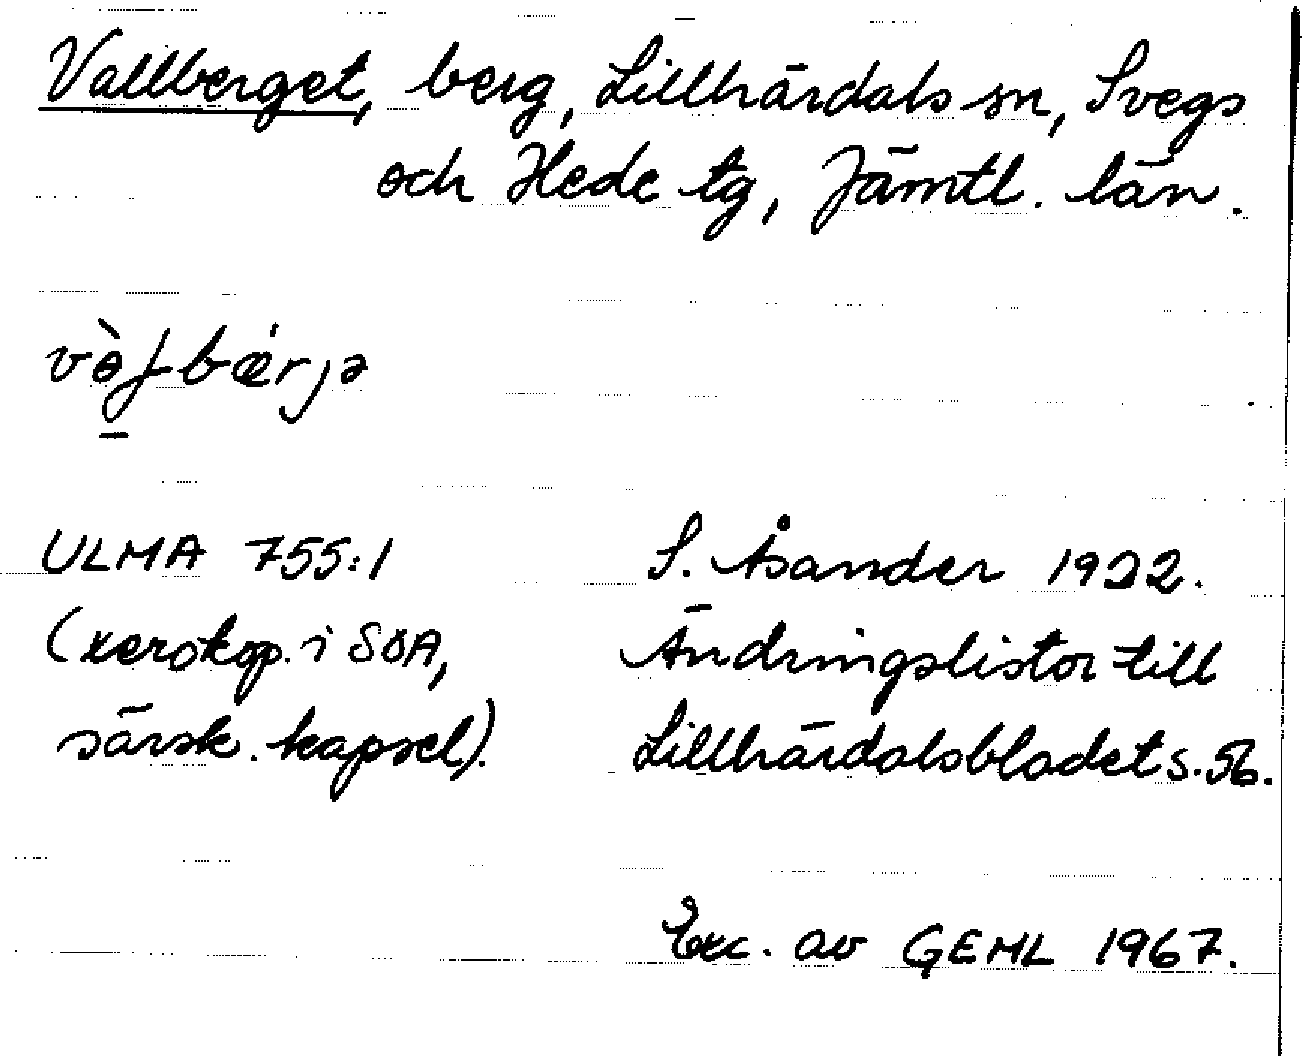 Vallberget, berg, Lillhärdals sn, Svegs
och Hede tg, Jämtl. län.
ULMA 755:1
(xerokop. i SOA,
särsk. kapsel).
S. Åsander 1922.
Ändringslistor till
Lillhärdalsbladet s. 56.
Exc. av GEML 1967.